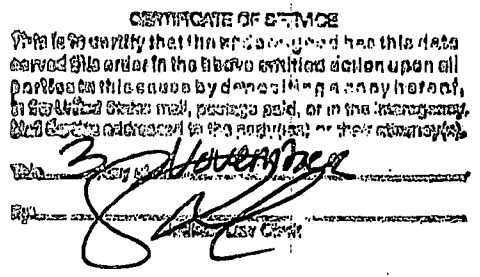 CERTIFICATE OF SERVICE
This is to certify that the undersigned has this date
served this order in the above entitled action upon all
parties to this cause by depositing a copy hereof,
in the United States mail, postage paid, or in the Interagency
Mail Service addressed to the parties or their attorney(s).
This 3 day of November
By
Law Clerk